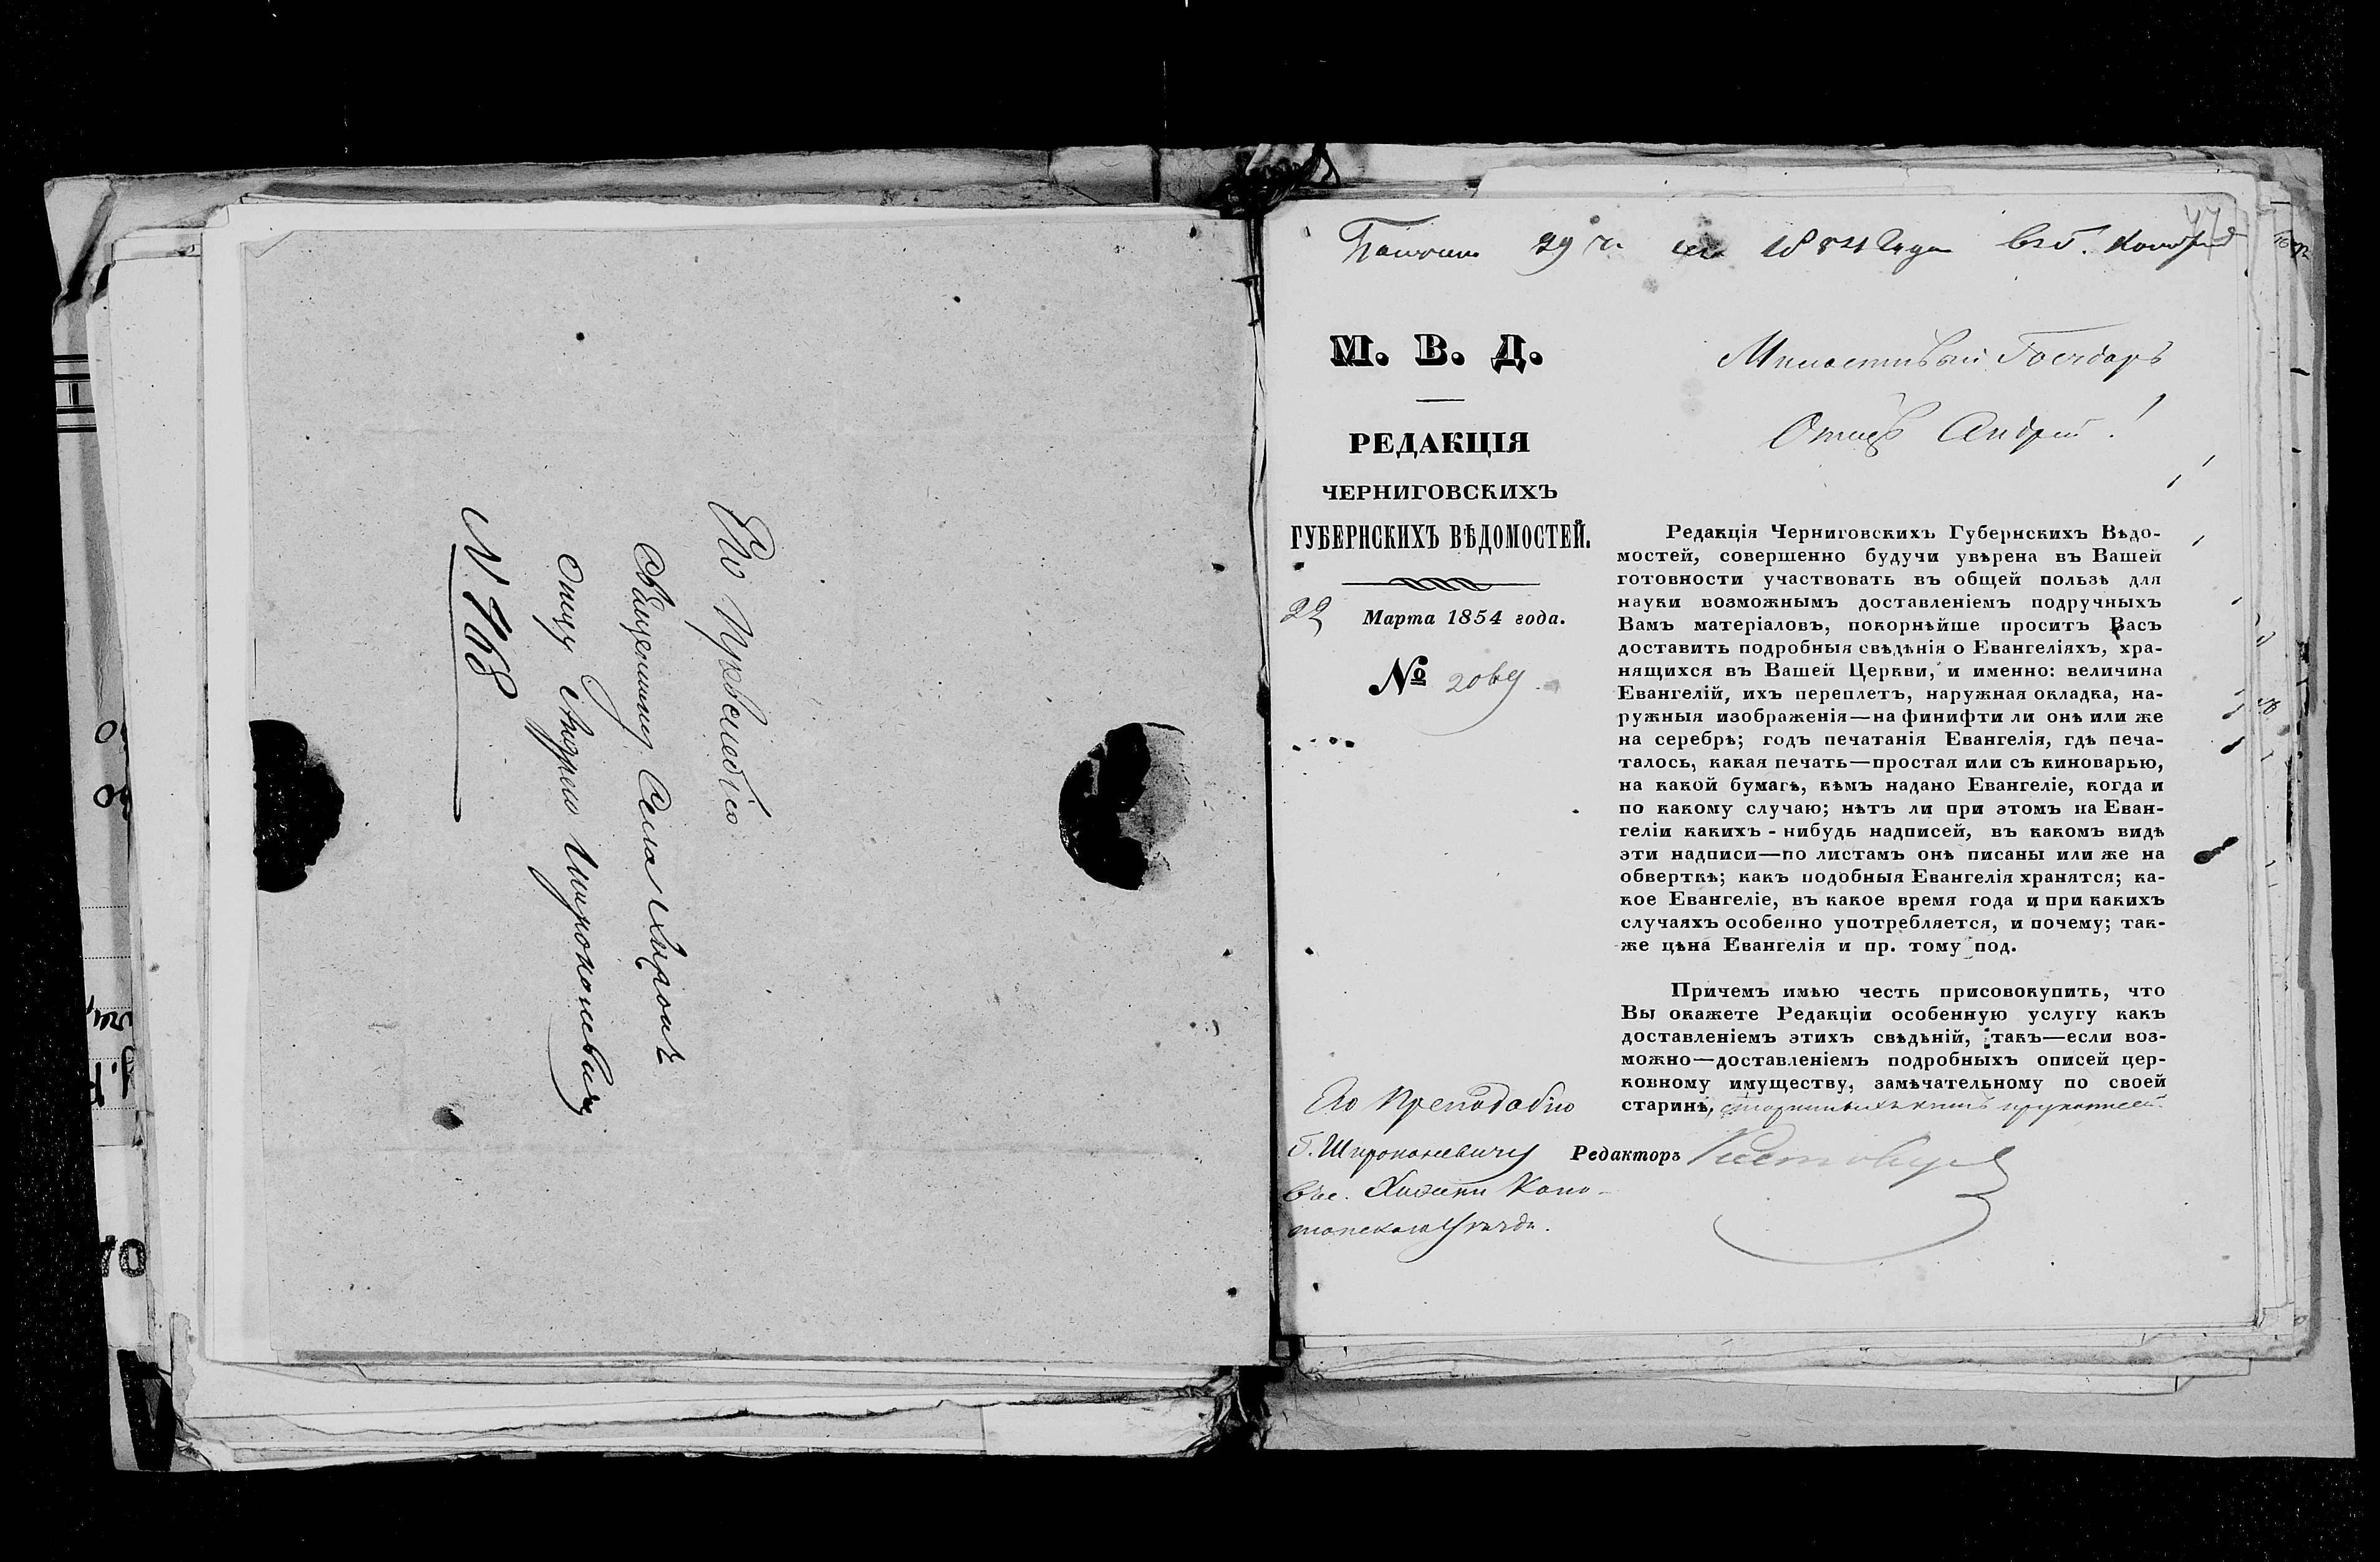 Его Превелебію
Священнику Села
Отцу Андрею Широкопоневичу
N 768
29 1854 года
М. В. Д.
РЕДАКЦІЯ
ЧЕРНИГОВСКИХЪ
ГУБЕРНСКИХЪ ВѢДОМОСТЕЙ.
22 Марта 1854 года.
№
Милостивый Государь
Отецъ Андрей!
Редакція Черниговскихъ Губернскихъ Вѣдо-
мостей, совершенно будучи увѣрена въ Вашей
готовности участвовать въ общей пользѣ для
науки возможнымъ доставленіемъ подручныхъ
Вамъ матеріаловъ, покорнѣйше проситъ Васъ
доставить подробныя свѣдѣнія о Евангеліяхъ, хра-
нящихся въ Вашей Церкви, и именно: величина
Евангелій, ихъ переплетъ, наружная окладка, на-
ружныя изображенія—на финифти ли онѣ или же
на серебрѣ; годъ печатанія Евангелія, гдѣ печа-
талось, какая печать—простая или съ киноварью,
на какой бумагѣ, кѣмъ надано Евангеліе, когда и
по какому случаю; нѣтъ ли при этомъ на Еван-
геліи какихъ-нибудь надписей, въ какомъ видѣ
эти надписи—по листамъ онѣ писаны или же на
оберткѣ; какъ подобныя Евангелія хранятся; ка-
кое Евангеліе, въ какое время года и при какихъ
случаяхъ особенно употребляется, и почему; так-
же цѣна Евангелія и пр. тому под.
Причемъ имѣю честь присовокупить, что
Вы окажете Редакціи особенную услугу какъ
доставленіемъ этихъ свѣдѣній, такъ—если воз-
можно—доставленіемъ подробныхъ описей цер-
ковному имуществу, замѣчательному по своей
старинѣ, старинныхъ книгъ и рукописей.
Редакторъ
Его Преподобію
Коно-
топскаго уѣзда.